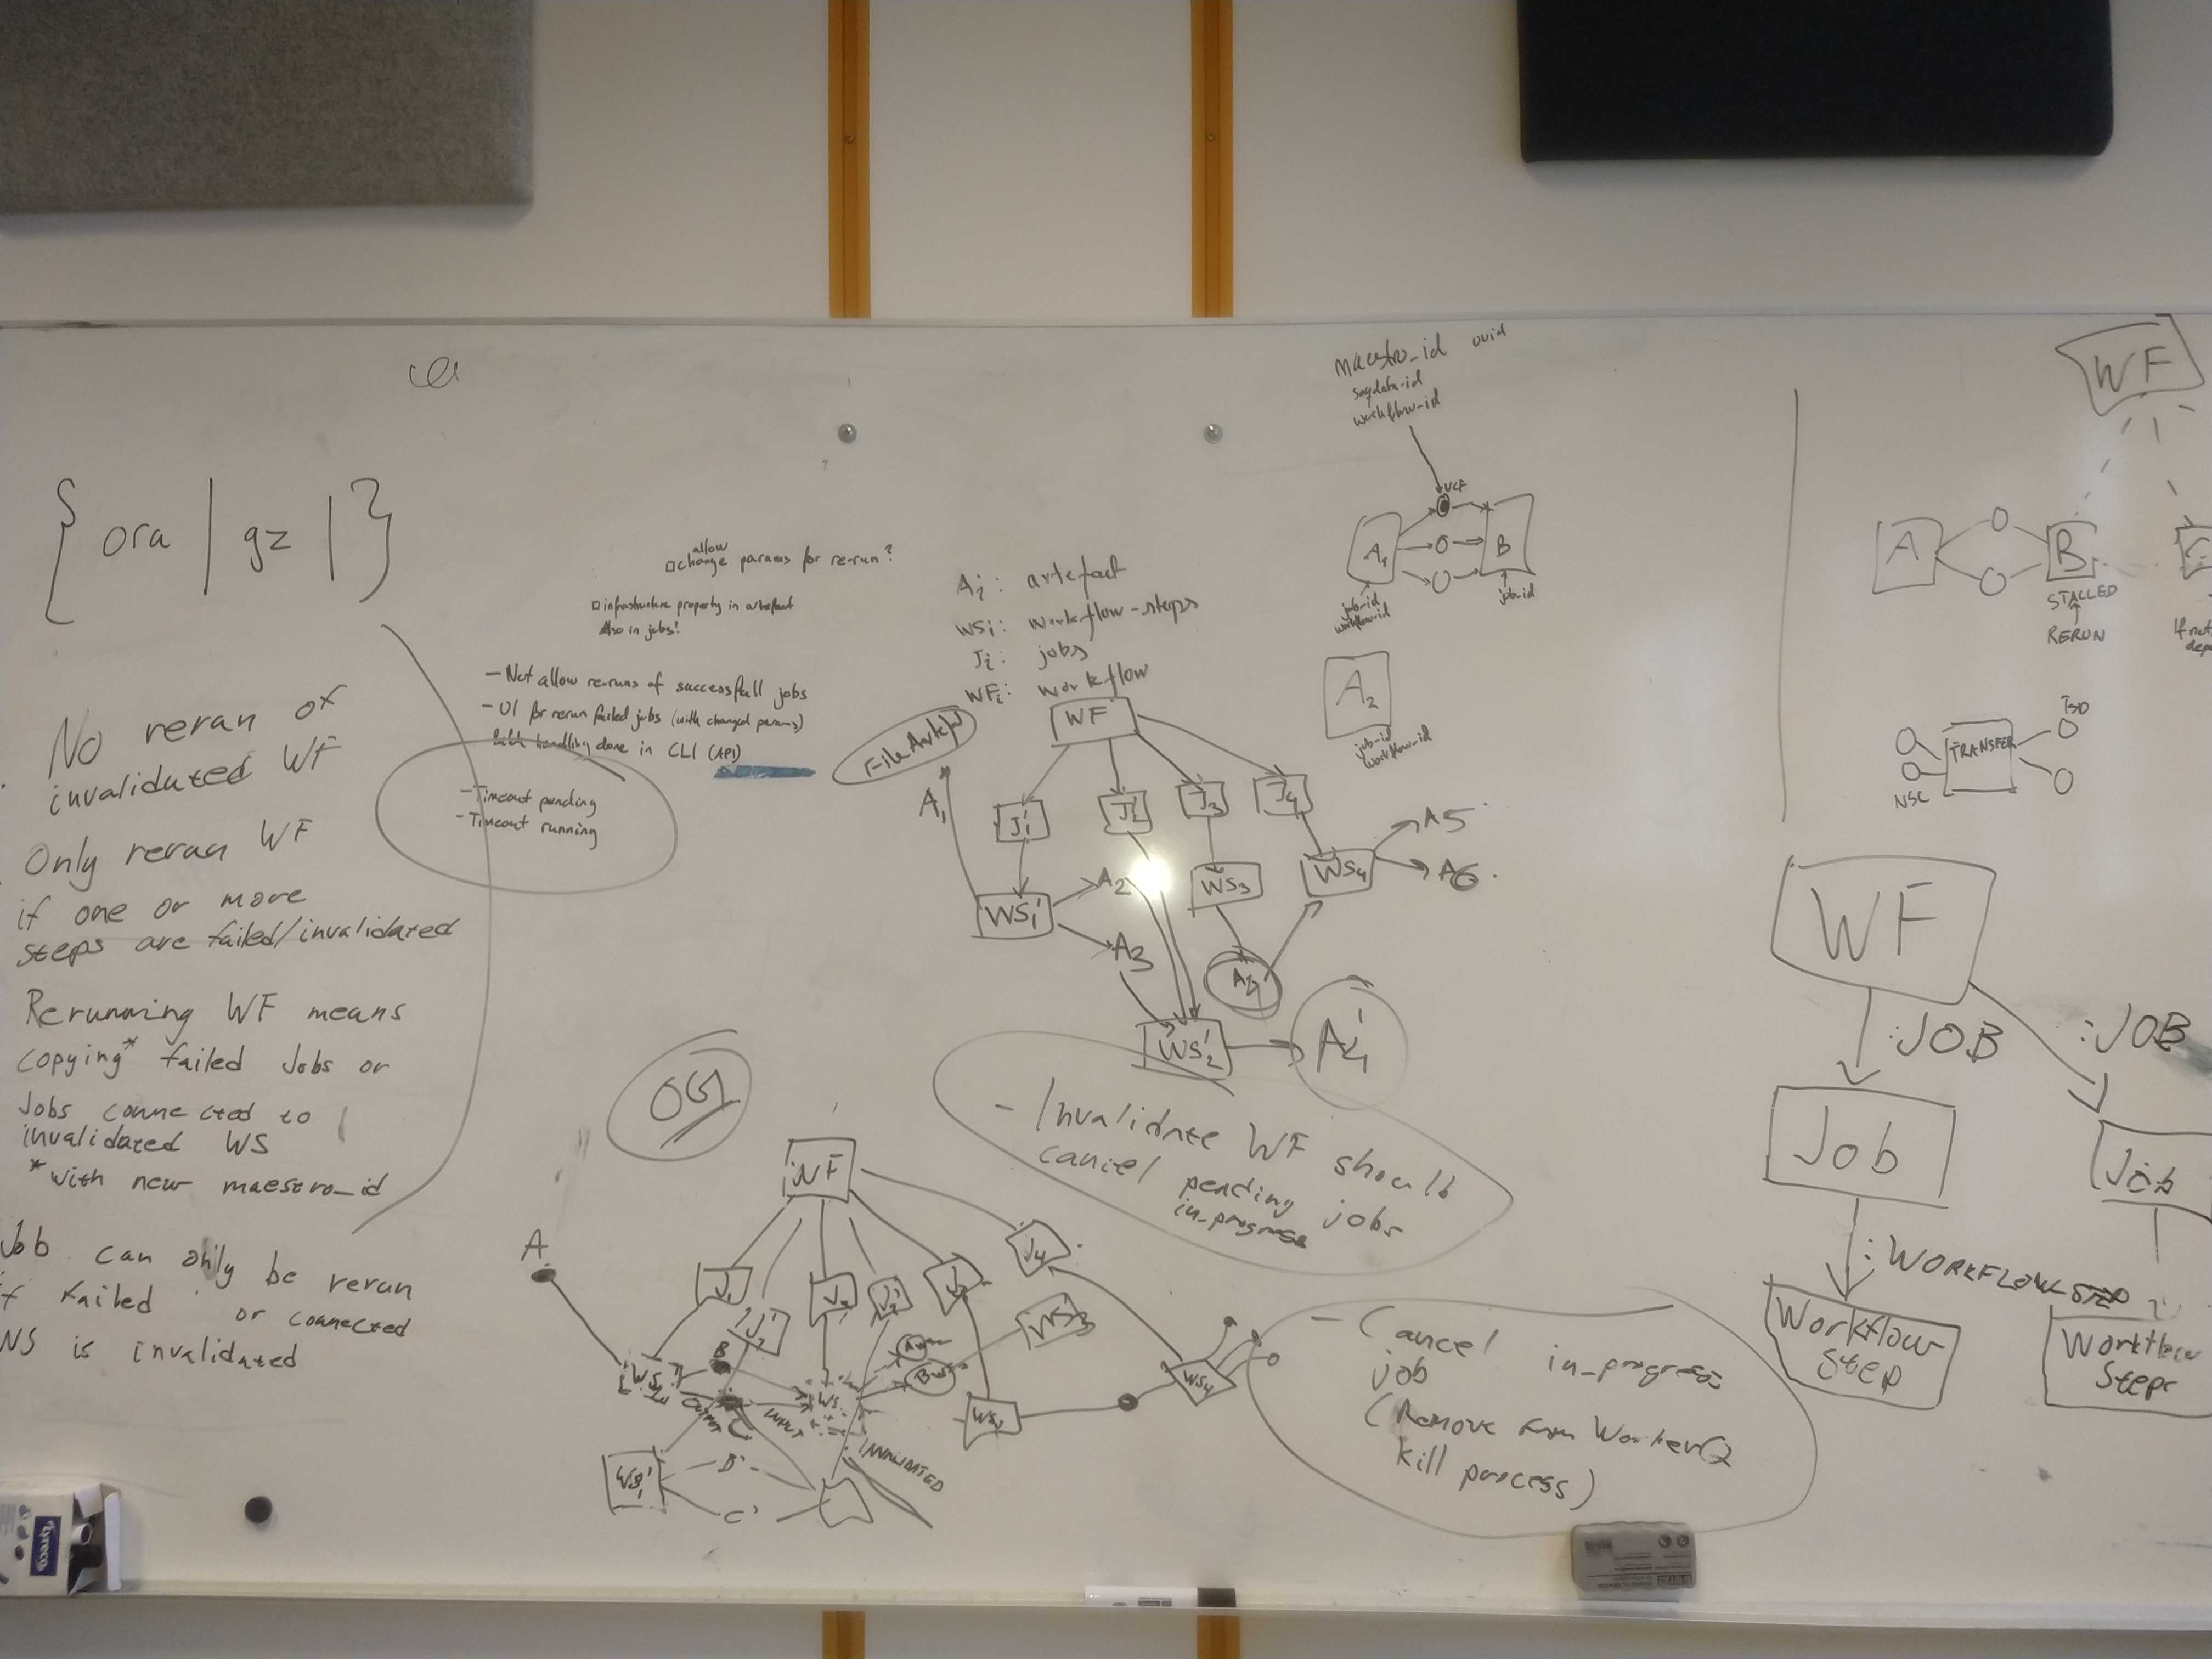 { ora | gz | }
No reran of
invalidated WF
Only reran WF
if one or more
steps are failed/invalidated
Rerunning WF means
copying* failed Jobs or
Jobs connected to
invalidated WS
*with new maestro_id
Job can only be rerun
failed or connected
WS is invalidated
allow
change params for re-run?
infrastructure property in artefact
Also in jobs!
- Not allow re-runs of successfull jobs
- UI for rerun failed jobs (with changed params)
handling done in CLI (API)
- Timeout pending
- Timeout running
Ai: artefact
WSi: workflow-steps
Ji: jobs
WFi: workflow
File Artefact
WF
A1
J1'
J2'
J3
J4
WS1'
A2
WS3
WS4
A5
A6
A3
A4
WS2'
A4'
maestro_id uuid
workflow-id
VCF
A1
B
job-id
workflow-id
job-id
A2
job-id
workflow-id
OG
- Invalidate WF should
cancel pending jobs
in_progress
WF
A
J1
J2'
J4
B
C
WS1'
B'
C'
WS4
INVALIDATED
- Cancel in_progress
job
(Remove from WorkerQ
kill process)
WF
A
B
STALLED
RERUN
If not
TRANSFER
NSC
TSD
WF
:JOB
:JOB
Job
Job
:WORKFLOW
Workflow
Step
Workflow
Step
Lyreco